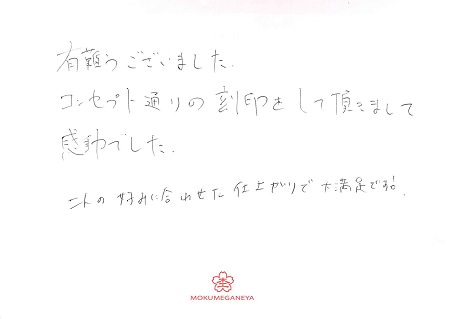 有難うございました.
コンセプト通りの刻印をして頂きまして
感動でした.
二人の好みに合わせた仕上がりで大満足です!
MOKUMEGANEYA